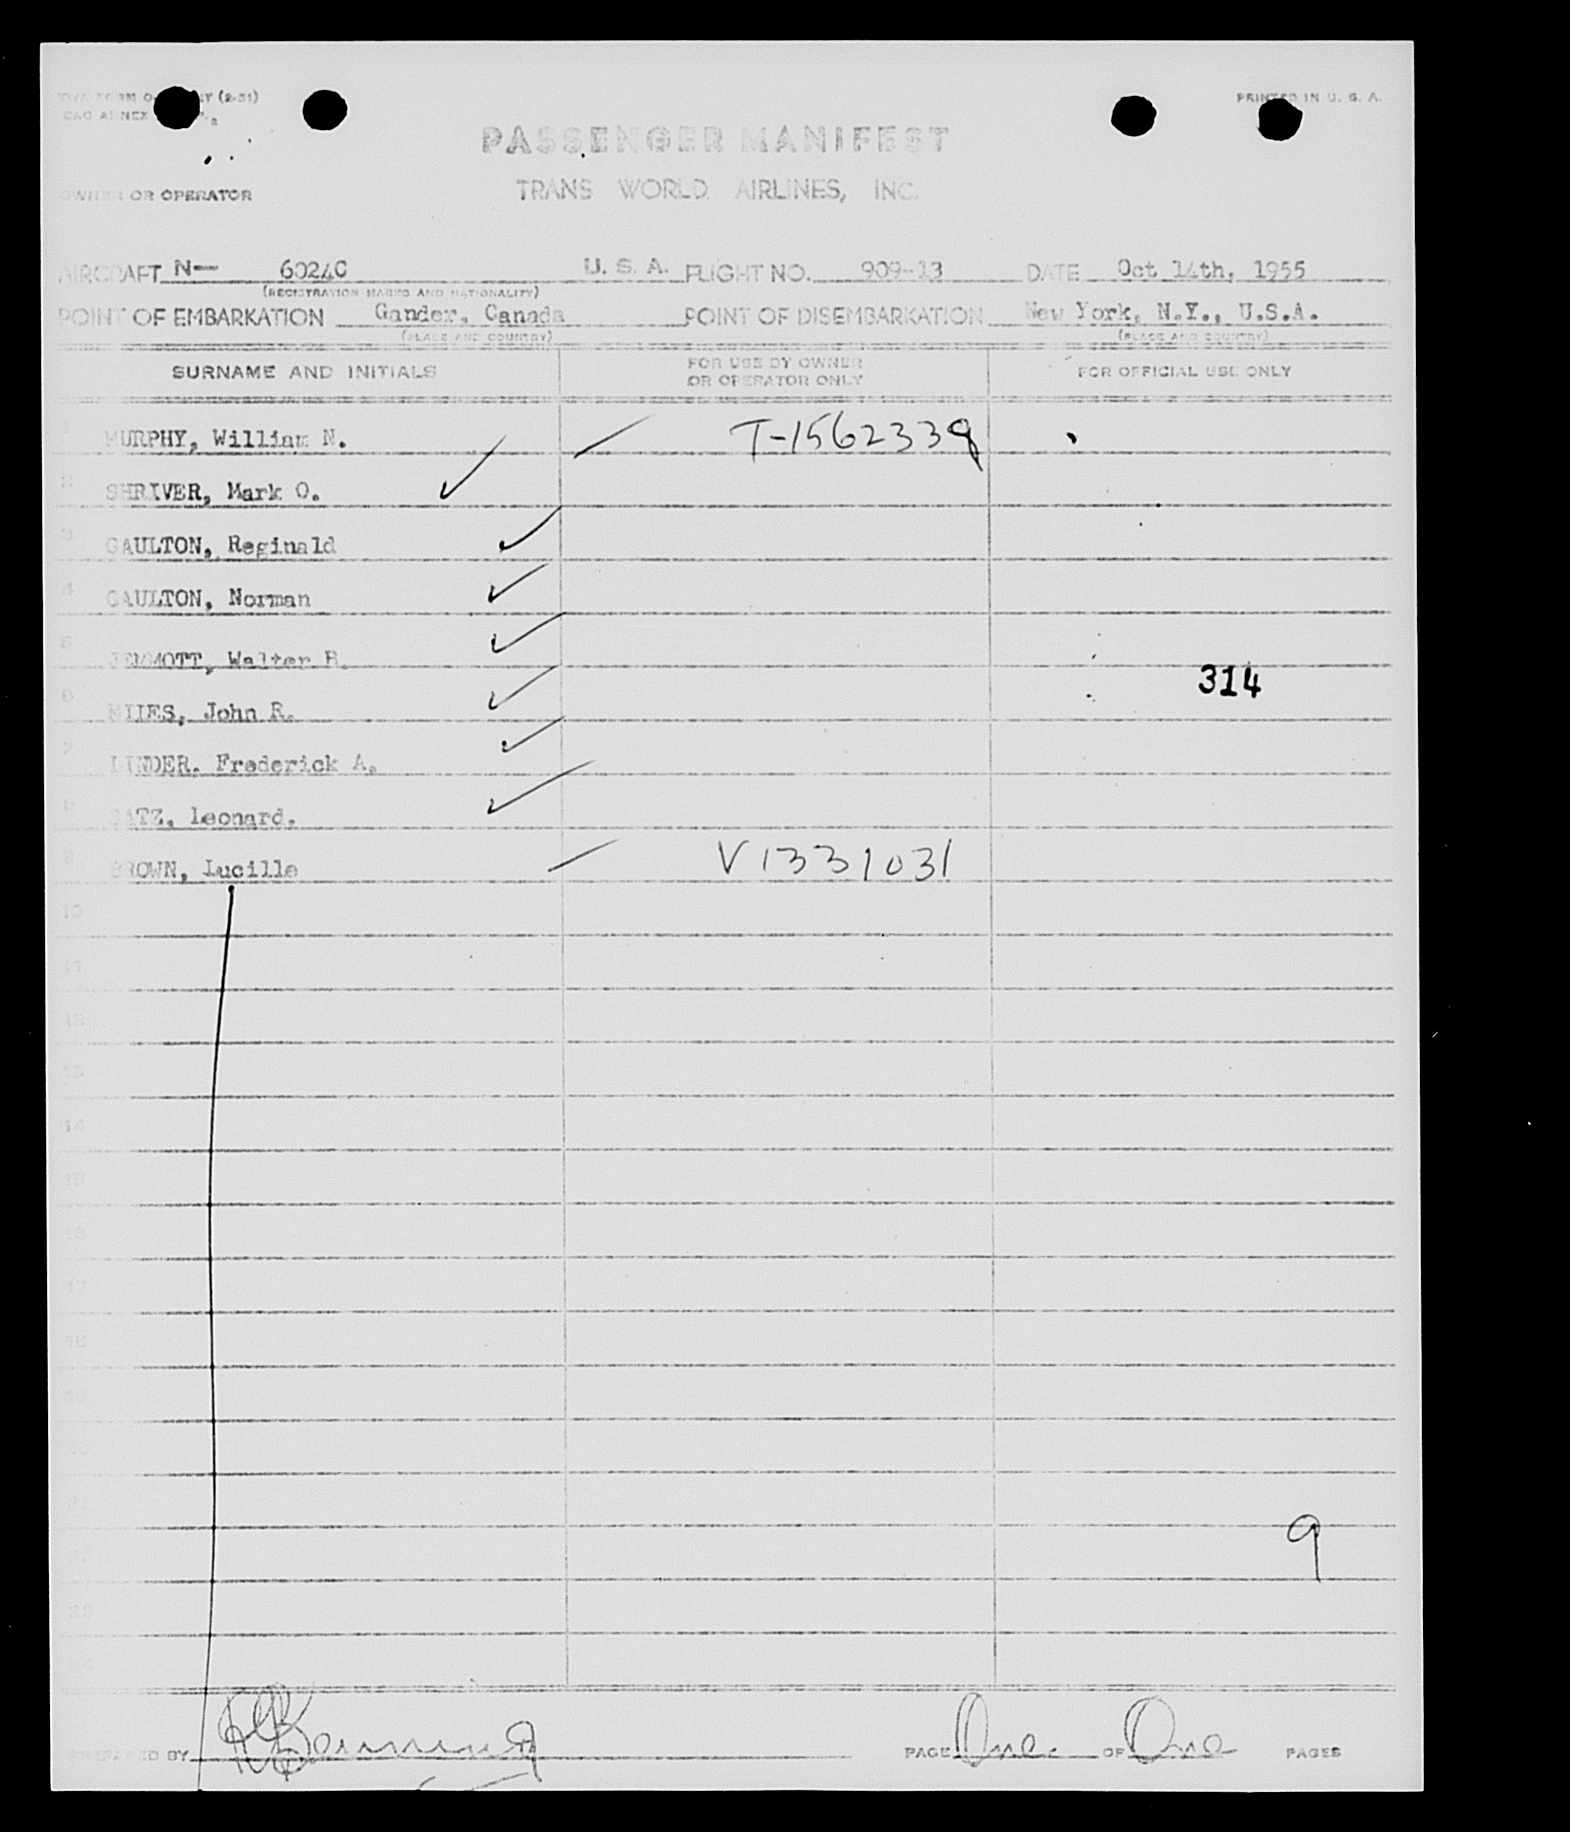 PRINTED IN U. S. A.
PASSENGER MANIFEST
OWNER OR OPERATOR
TRANS WORLD AIRLINES, INC.
AIRCRAFT N— 6024C U. S. A. FLIGHT NO. 909-13 DATE Oct 14th, 1955
(REGISTRATION MARKS AND NATIONALITY)
POINT OF EMBARKATION Gander, Canada POINT OF DISEMBARKATION New York, N.Y., U.S.A.
(PLACE AND COUNTRY) (PLACE AND COUNTRY)
SURNAME AND INITIALS FOR USE BY OWNER OR OPERATOR ONLY FOR OFFICIAL USE ONLY
1 MURPHY, William N. T-1562339
2 SHRIVER, Mark O.
3 GAULTON, Reginald
4 GAULTON, Norman
5 Walter B.
6 John R.
7 LINDER. Frederick A.
8 Leonard.
9 BROWN, Lucille V1331031
314
10
11
12
13
14
15
16
17
18
19
20
21
22
23
24
9
PREPARED BY PAGE One. OF One PAGES